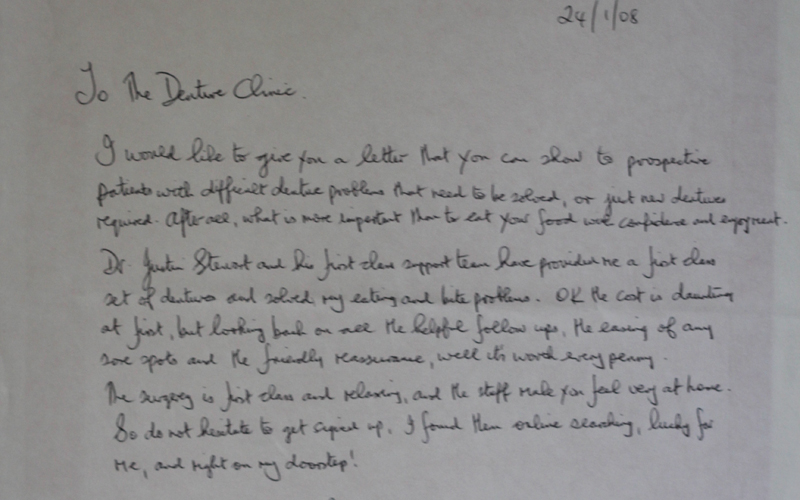 24/1/08
To The Denture Clinic.
I would like to give you a letter that you can show to prospective
patients with difficult denture problems that need to be solved, or just new dentures
required. After all, what is more important than to eat your food with confidence and enjoyment.
Dr. Justin Stewart and his first class support team have provided me a first class
set of dentures and solved my eating and bite problems. OK the cost is daunting
at first, but looking back on all the helpful follow ups, the easing of any
sore spots and the friendly reassurance, well its worth every penny.
The surgery is first class and relaxing, and the staff make you feel very at home.
So do not hesitate to get up, I found them online searching, lucky for
me, and right on my doorstep!